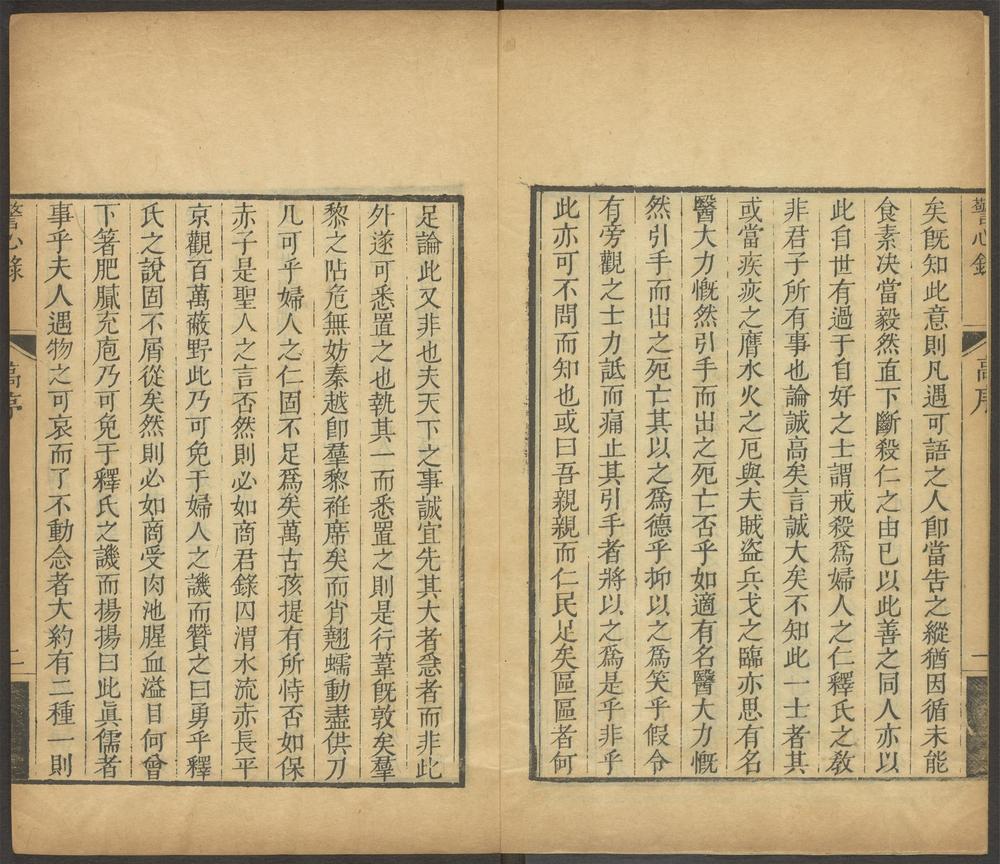 警心錄
高序
一
矣旣知此意則凡遇可語之人卽當告之縱猶因循未能
食素决當毅然直下斷殺仁之由已以此善之同人亦以
此自世有過于自好之士謂戒殺爲婦人之仁釋氏之敎
非君子所有事也論誠高矣言誠大矣不知此一士者其
或當疾疢之膺水火之厄與夫賊盜兵戈之臨亦思有名
醫大力慨然引手而出之死亡否乎如適有名醫大力慨
然引手而出之死亡其以之爲德乎抑以之爲笑乎假令
有旁觀之士力詆而痛止其引手者將以之爲是乎非乎
此亦可不問而知也或曰吾親親而仁民足矣區區者何
足論此又非也夫天下之事誠宜先其大者急者而非此
外遂可悉置之也執其一而悉置之則是行葦旣敦矣羣
黎之阽危無妨秦越卽羣黎袵席矣而肖翹蠕動盡供刀
几可乎婦人之仁固不足爲矣萬古孩提有所恃否如保
赤子是聖人之言否然則必如商君錄囚渭水流赤長平
京觀百萬蔽野此乃可免于婦人之譏而贊之曰勇乎釋
氏之說固不屑從矣然則必如商受肉池腥血溢目何曾
下箸肥膩充庖乃可免于釋氏之譏而揚揚曰此眞儒者
事乎夫人遇物之可哀而了不動念者大約有二種一則
警心錄
高序
二